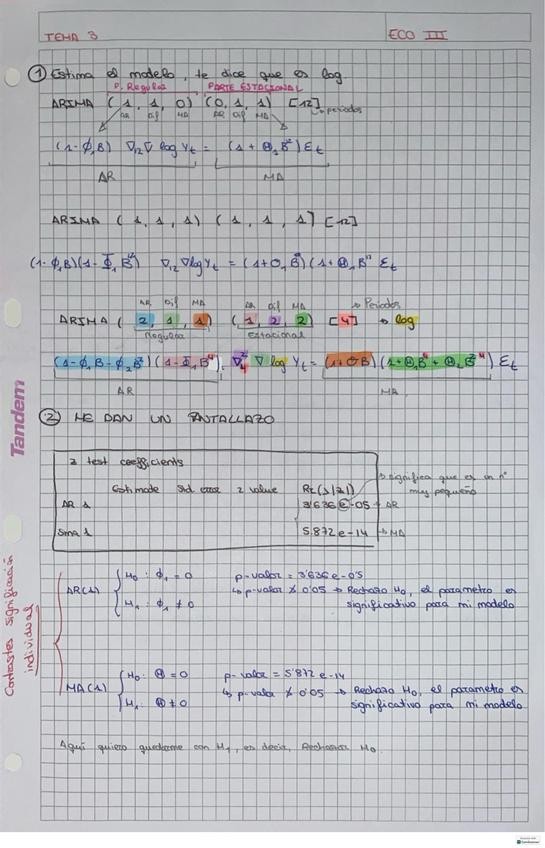 TEMA 3
ECO III
① Estima el modelo, te dice que es log
P. Regular PARTE ESTACIONAL
ARIMA (1, 1, 0) (0, 1, 1) [12] → periodos
AR Dif MA AR Dif MA
(1-ϕ₁B) ∇₁₂∇ log Yₜ = (1 + Θ₁B¹²) Ɛₜ
AR MA
ARIMA (1, 1, 1) (1, 1, 1) [12]
(1-ϕ₁B)(1-Φ₁B¹²) ∇₁₂∇logYₜ = (1+Θ₁B)(1+Θ₁B¹² Ɛₜ
AR Dif MA AR Dif MA → Periodos
ARIMA (2, 1, 1) (1, 2, 2) [4] → log
Regular Estacional
(1-ϕ₁B-ϕ₂B²)(1-Φ₁B⁴) . ∇₄² ∇ log Yₜ = (1+ΘB)(1+Θ₁B⁴+Θ₂B²˙⁴) Ɛₜ
AR MA
② ME DAN UN PANTALLAZO
z test coefficients
Estimate Std error z value Pr(>|z|)
→ significa que es un nº muy pequeño
AR 1 3'636 e-05 → AR
sma 1 5.872 e-14 → MA
Contrastes significación individual
AR(1) { H₀ : ϕ₁ = 0 p-valor = 3'636 e-05
H₁ : ϕ₁ ≠ 0 ↳ p-valor ≯ 0'05 → Rechazo H₀, el parametro es
significativo para mi modelo
MA(1) { H₀ : Θ = 0 p-valor = 5'872 e-14
H₁ : Θ ≠ 0 ↳ p-valor ≯ 0'05 → Rechazo H₀, el parametro es
significativo para mi modelo
Aquí quiero quedarme con H₁, es decir, Rechazar H₀.
Tandem
CamScanner